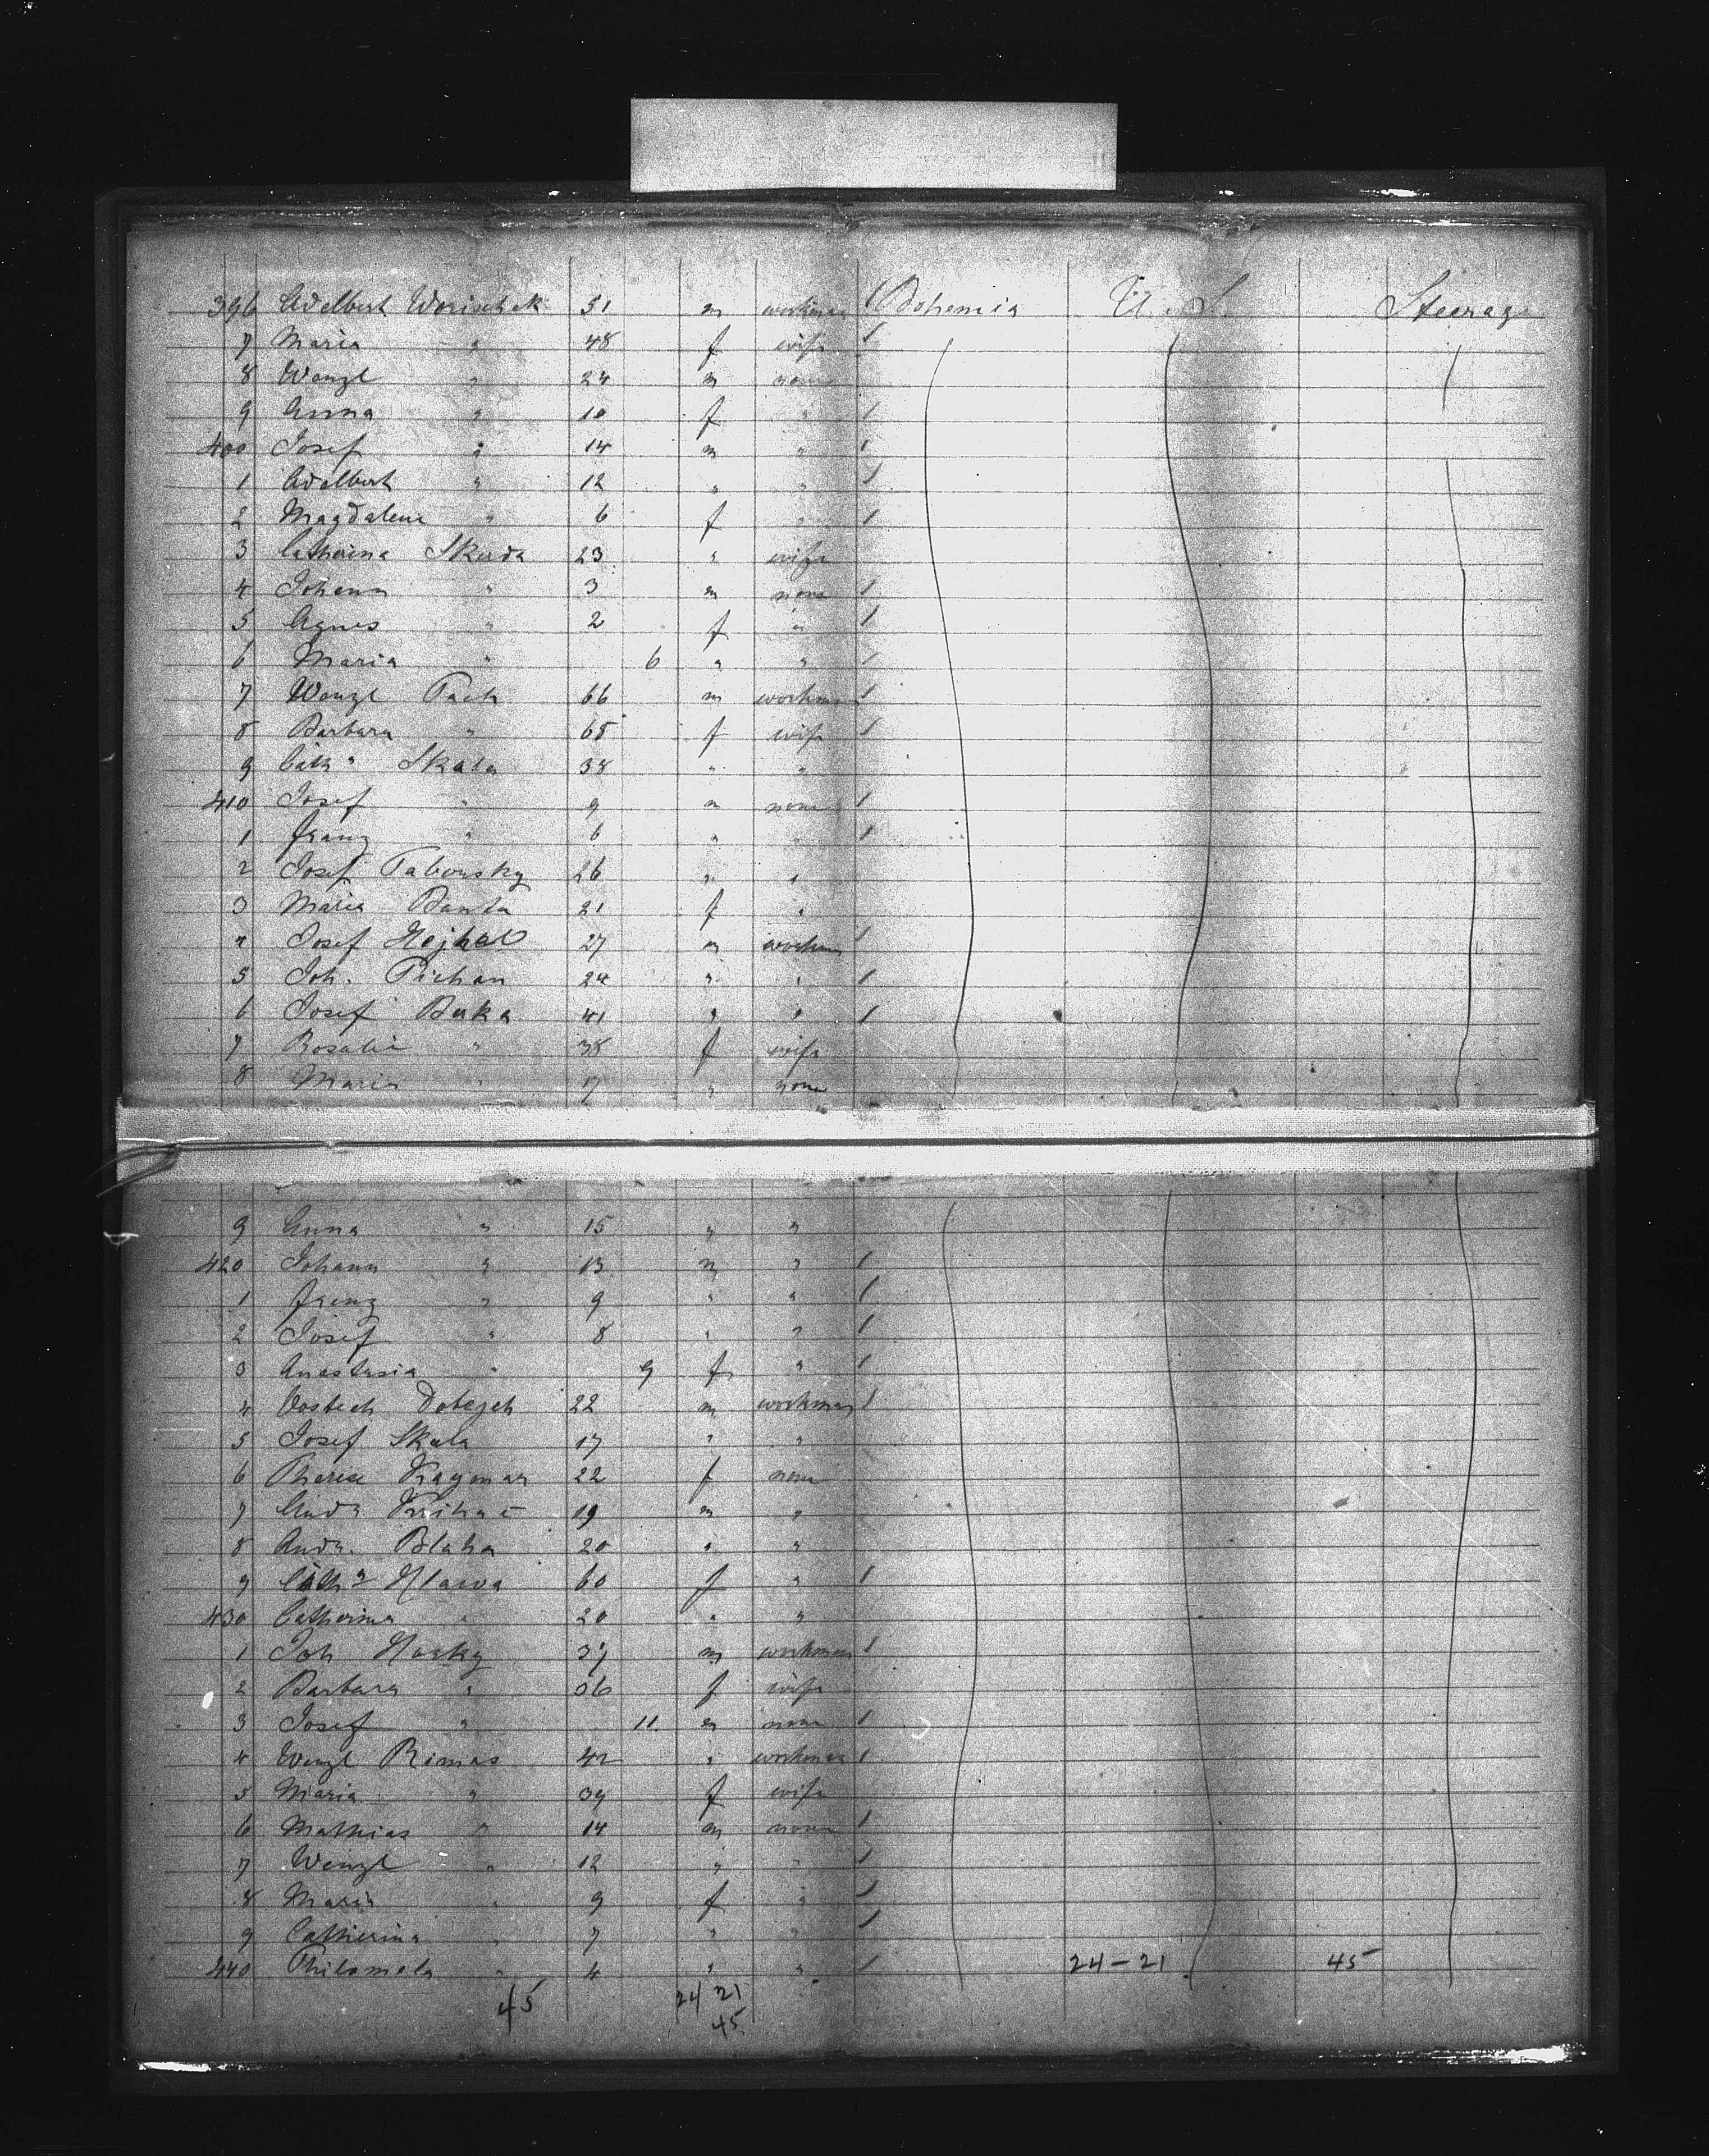 396 Adelbert Worischek 51 m workman 1 Bohemia U. S. Steerage
7 Maria " 48 f wife 1
8 Wenzl " 24 m none
9 Anna " 10 f " 1
400 Josef " 14 m " 1
1 Adelbert " 12 " " 1
2 Magdalena " 6 f " 1
3 Catherina Skuda 23 " wife
4 Johann " 3 m none 1
5 Agnes " 2 f " 1
6 Maria " 6 " " 1
7 Wenzl Pach 66 m workman 1
8 Barbara " 65 f wife 1
9 Cath" Skala 38 " "
410 Josef " 9 m none 1
1 Franz " 6 " " 1
2 Josef Taborsky 26 " "
3 Maria Banta 21 f "
4 Josef Hejhal 27 m workman 1
5 Joh. Pichan 24 " " 1
6 Josef Buka 41 " " 1
7 Rosalie " 38 f wife
8 Maria " 17 " none
9 Anna " 15 " "
420 Johann " 13 m " 1
1 Franz " 9 " " 1
2 Josef " 8 " " 1
3 Anastasia " 9 f " 1
4 22 m workman 1
5 Josef Skala 17 " "
6 Therese 22 f none
7 19 m "
8 Andr. Blaha 20 " "
9 Cath" Hlawa 60 f " 1
430 Catherina " 20 " "
1 Joh Horky 37 m workman 1
2 Barbara " 36 f wife
3 Josef " 11 m none 1
4 Wenzl Rimas 42 " workman 1
5 Maria " 39 f wife
6 Mathias " 14 m none 1
7 Wenzl " 12 " " 1
8 Maria " 9 f " 1
9 Catherina " 7 " " 1
440 Philomela " 4 " " 1 24-21 45
45 24 21
45